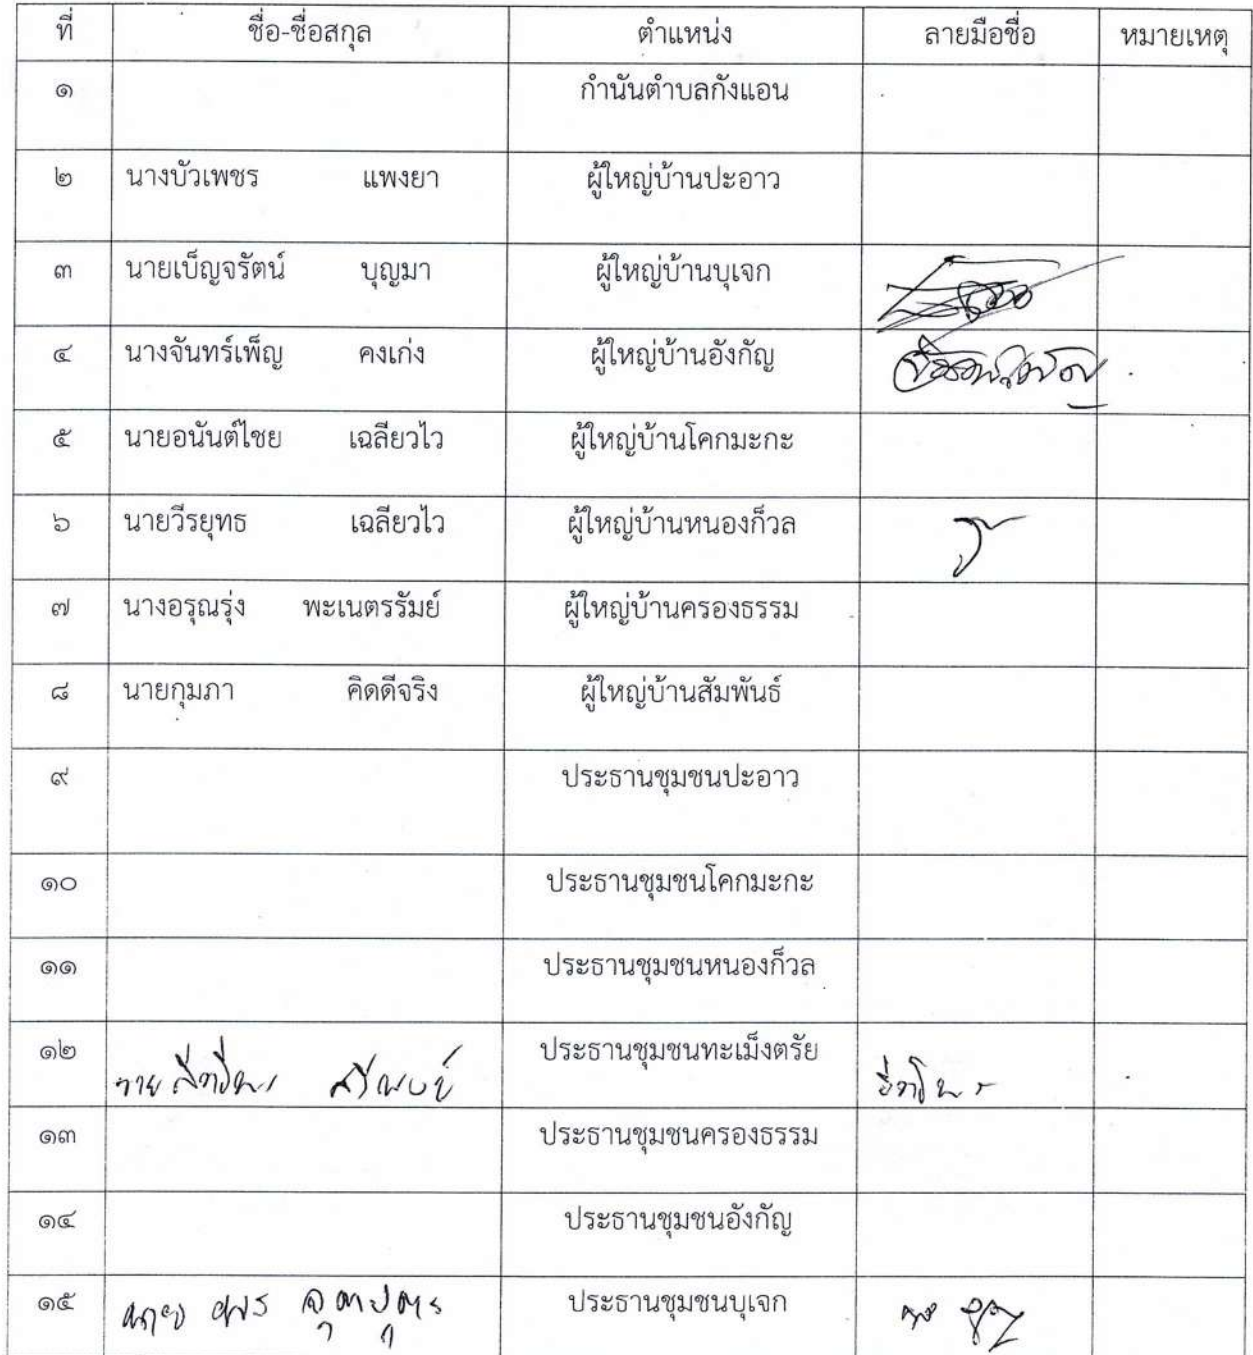 ที่ ชื่อ-ชื่อสกุล ตำแหน่ง ลายมือชื่อ หมายเหตุ
๑ กำนันตำบลกังแอน
๒ นางบัวเพชร แพงยา ผู้ใหญ่บ้านปะอาว
๓ นายเบ็ญจรัตน์ บุญมา ผู้ใหญ่บ้านบุเจก
๔ นางจันทร์เพ็ญ คงเก่ง ผู้ใหญ่บ้านอังกัญ จันทร์เพ็ญ
๕ นายอนันต์ไชย เฉลียวไว ผู้ใหญ่บ้านโคกมะกะ
๖ นายวีรยุทธ เฉลียวไว ผู้ใหญ่บ้านหนองก็วล
๗ นางอรุณรุ่ง พะเนตรรัมย์ ผู้ใหญ่บ้านครองธรรม
๘ นายกุมภา คิดดีจริง ผู้ใหญ่บ้านสัมพันธ์
๙ ประธานชุมชนปะอาว
๑๐ ประธานชุมชนโคกมะกะ
๑๑ ประธานชุมชนหนองก็วล
๑๒ นาย ประธานชุมชนทะเม็งตรัย
๑๓ ประธานชุมชนครองธรรม
๑๔ ประธานชุมชนอังกัญ
๑๕ นาย ประธานชุมชนบุเจก